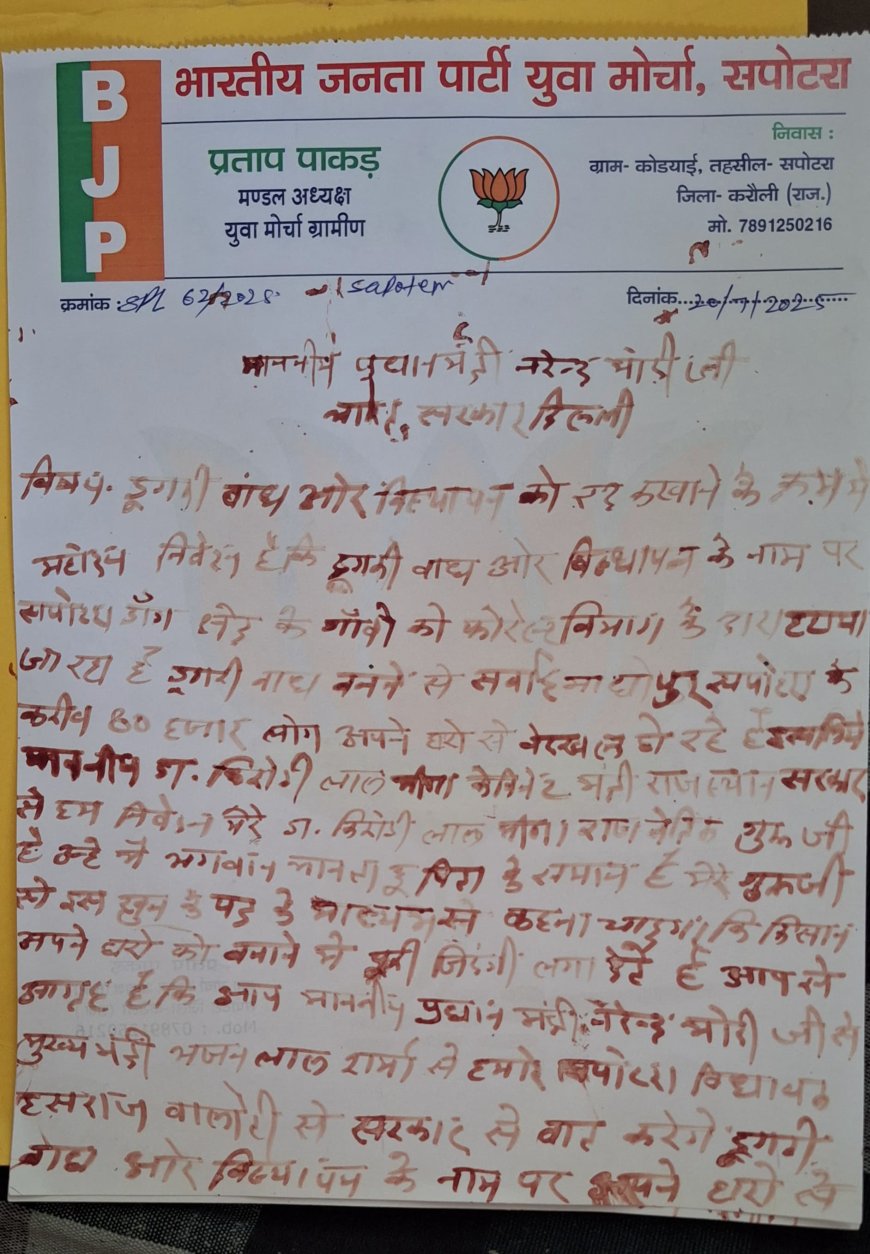 BJP
भारतीय जनता पार्टी युवा मोर्चा, सपोटरा
प्रताप पाकड़
मण्डल अध्यक्ष
युवा मोर्चा ग्रामीण
निवास :
ग्राम- कोडयाई, तहसील- सपोटरा
जिला- करौली (राज.)
मो. 7891250216
क्रमांक : 62/2025 sapotara
दिनांक...20/11/2025
माननीय प्रधानमंत्री नरेन्द्र मोदी जी
भारत सरकार दिल्ली
विषय. डूगरी बांध ओर विस्थापन को रद्द करवाने के क्रम मे
महोदय निवेदन है कि डूगरी बाध ओर विस्थापन के नाम पर
सपोटरा डाँग क्षेत्र के गाँवो को फोरेस्ट विभाग के द्वारा हटाया
जा रहा है डूगरी बाध बनने से सवाईमाधोपुर सपोटरा के
करीब 80 हजार लोग अपने घरो से बेदखल हो रहे है इसलिये
माननीय डा. किरोडी लाल मीणा केबिनेट मंत्री राजस्थान सरकार
से हम निवेदन मेरे डा. किरोडी लाल मीणा राजनेतिक गुरू जी
है उन्हे मे भगवान मानता हू पिता के समान है मेरे गुरूजी
से इस खुन के पत्र के माध्यम से कहना चाहूगा कि किसान
अपने घरो को बनाने मे पूरी जिंदगी लगा देते है आप से
आग्रह है कि आप माननीय प्रधान मंत्री नरेन्द्र मोदी जी से
मुख्य मंत्री भजन लाल शर्मा से हमारे सपोटरा विधायक
हंसराज बालोती से सरकार से बात करेगे डूगरी
बाध ओर विस्थापन के नाम पर अपने घरो से